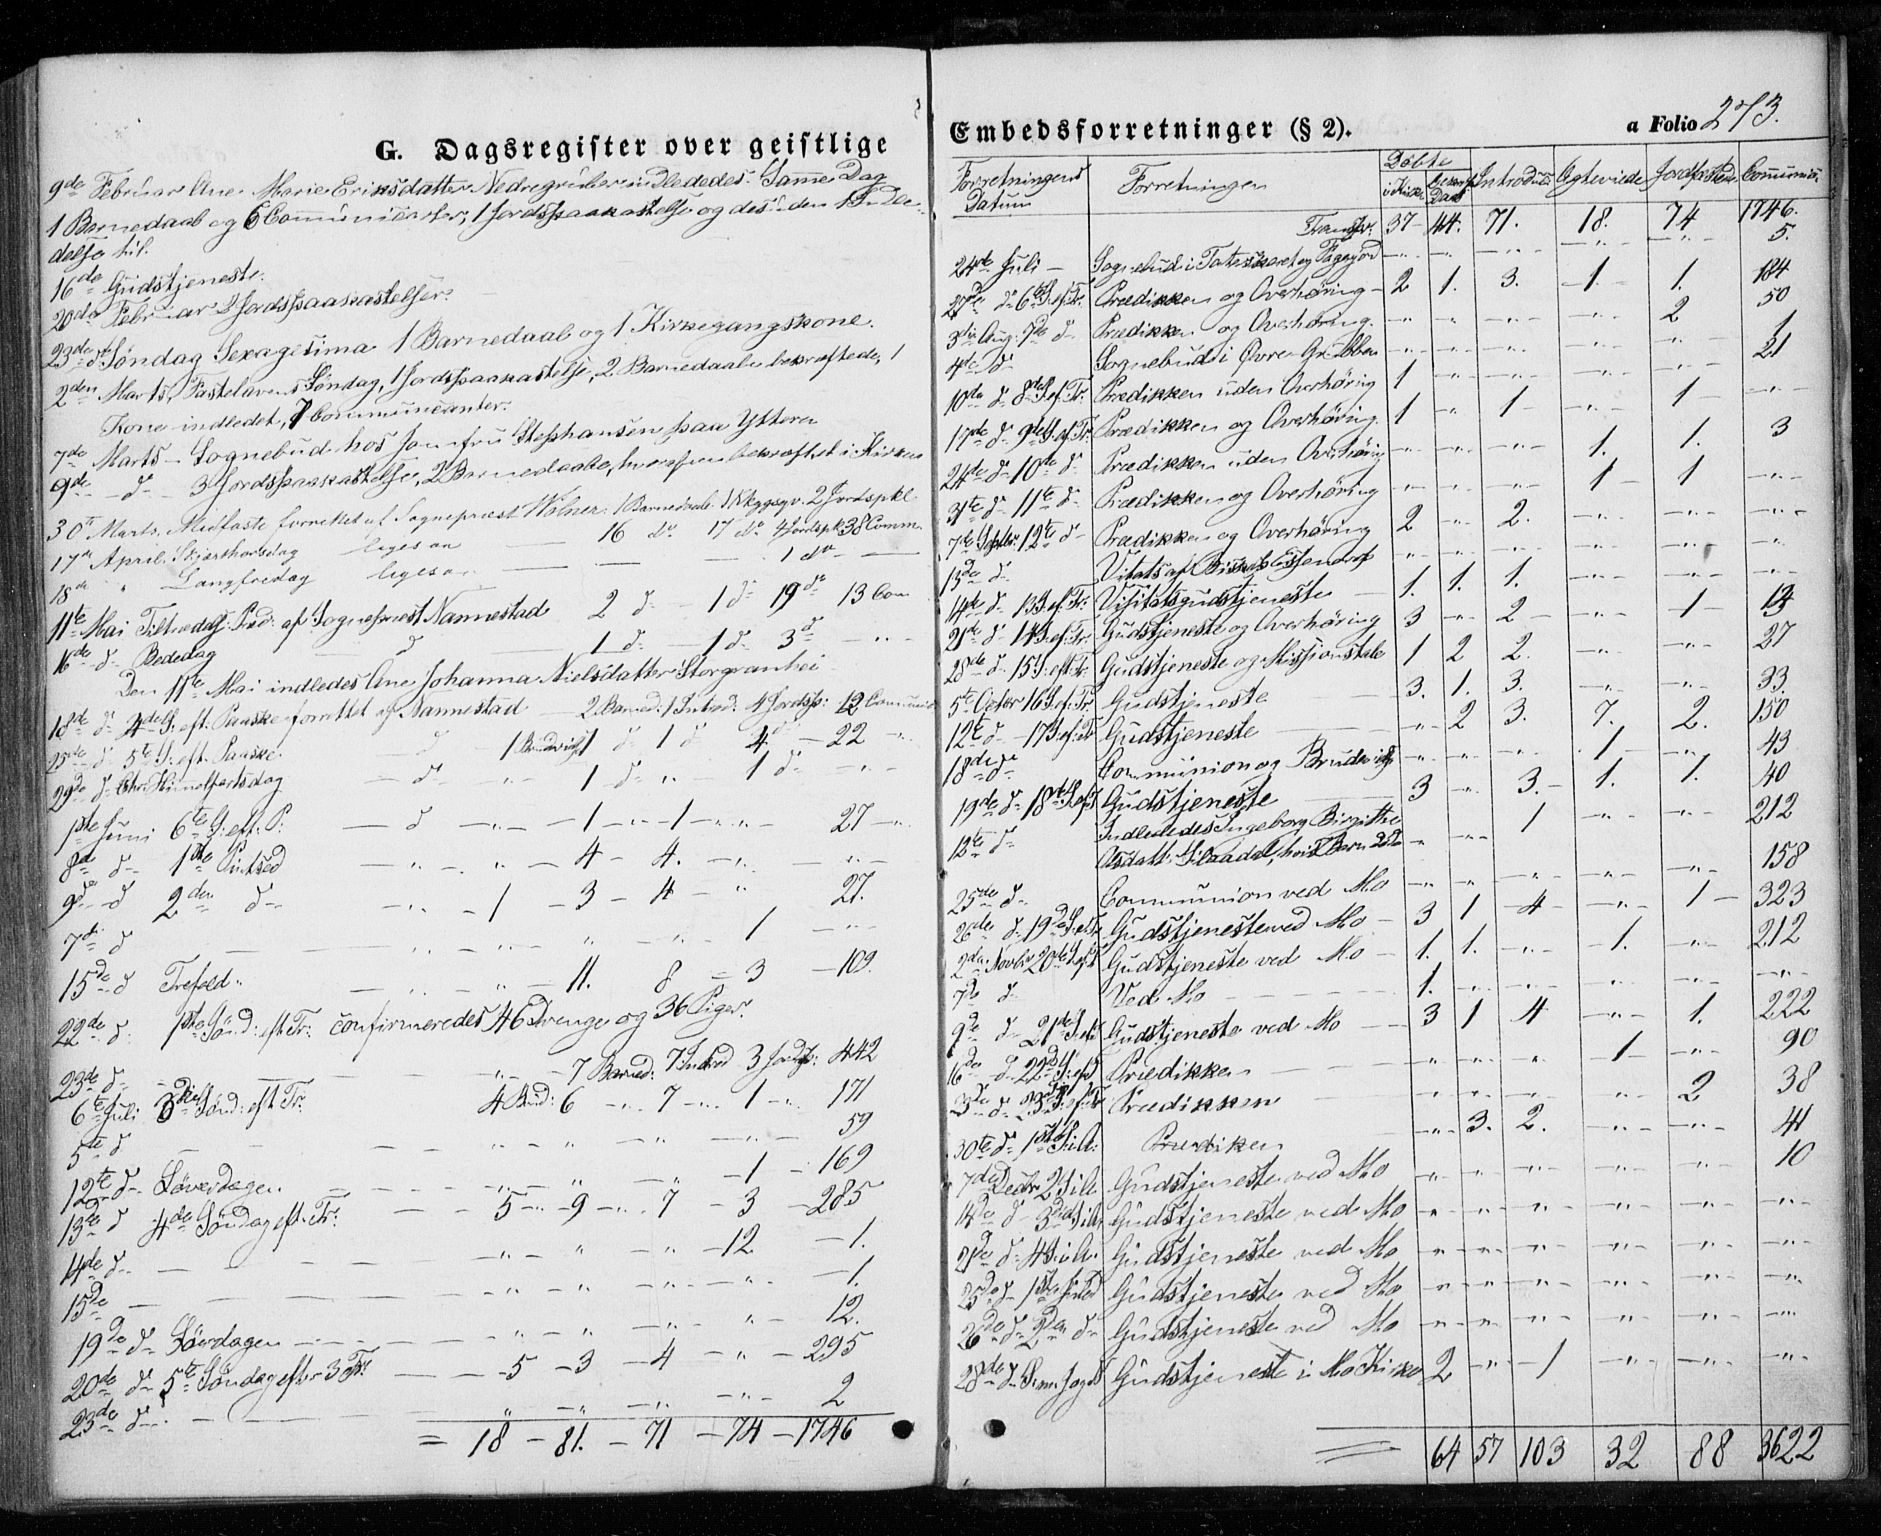 G. Dagsregister over geistlige
9de Februar Ane Marie Eriksdatter Nedregruben indlededes. Samme Dag
1 Barnedaab og 6 Communicanter, 1 Jordspaakastelse og desuden 1 Indle-
delse til.
16de Gudstjeneste.
20de Februar 2 Jordspaakastelser.
23de d. Søndag Sexagesima 1 Barnedaab og 1 Kirkegangskone.
2den Marts, Fastelavens Søndag, 1 Jordspaakastelse, 2 Barnedaabe bekræftede, 1
Kone indledet, 7 Communicanter.
7de Marts - Sognebud hos Jomfru Stephansen paa Ytteren
9de - d - 3 Jordspaakastelse, 2 Barnedaabe, hvoraf een bekræftet i Kirken
30te Marts. Midfaste forrettet af Sognepræst Wolner. 1 Barnedaab 1 2 Jordspkl
17de April Skjærthorsdag ligesaa 16 do 17 do 4 Jordspk 38 Comm.
18de " Langfredag ligesaa 1 do
11te Mai Tiltrædelses Præd: af Sognepræst Nannestad 2 d - 1 d 19 d 13 Com
16de d. Bededag d 1 d. - 1 d. 3 d - " -
Den 11te Mai indledes Ane Johanna Nielsdatter Storgranhei
18de d. 4de S. eft. Paaske forrettet af Nannestad - 2 Barned: 1 Introd: 4 Jordsp: 12 Communic
25de d. 5te S: eft. Paaske. d 1 Brudvielse 1 d 1 d 4 d - 22 "
29de d. Chr. Himmelfartsdag - d " - 1 d " 1 d - " -
1ste Juni 6te S: eft. P: - d - " - 1 - " - 1 - " - " - 27 - "
8de d. 1ste Pintsed - " - " - 4 - 4. - " - " -
9de d 2den d - " - 1 - 3 - 4 - " 27.
7de d - " - " - " - 1 - " -
15de d Trefold: - " - 11. 8 - 3 - 109.
22de d. 1ste Sønd: eft Tr: confirmeredes 46 Drenge og 36 Piger.
23de d. - " - 7 Barned: 7 Introd 3 Jordsp: 442
6te Juli 3die Sønd: eft Tr: 4 Brud: 6 - " - 7 - " - 1 - " 171
5te d - " - " - " - 59
12te d - Løverdagen - " - " - " - 1 - 169
13de d 4de Søndag eft. Tr: - 5 - " - 9 - " - 7 - 3 - 285
14de d - " - " - " - 12 - 1.
15de - " - " - " - 1.
19de d - Løverdagen - " - " - " - " 12.
20de d - 5te Søndag efter 3 Tr: - 5 - 3 - 4 - " - 295
23de d - " - " - " - " - 2
= 18 - 81. - 71 - 74 - 1746
Embedsforretninger (§ 2). a Folio 273.
Forretningens Datum Forretningen Døbte i Kirke Hjemme Daab Introduc Ægteviede Jordfæstede Communic.
Transp. 37 - 44. 71. 18. 74 1746.
24de Juli - Sognebud i og - " - " - " - " - " 5.
27de d. 6te S. ef. Tr. Prædikken og Overhøring - 2 1. 3. 1. 1. 184
3die Aug. 7de d - Prædikken og Overhøring. " " " " 2 50
4de d Sognebud i Øvre Gr - " - " - " - " - " 1
10de d. 8de S. ef. Tr. Prædikken uden Overhøring 1 - " - " - " - 1 - 21
17de d. 9de S. ef. Tr. Prædikken og Overhøring. 1 " 1 - " - " - " -
24de d - 10de d. Prædikken uden Overhøring - " - " - " 1. 1. 3
31te d - 11te d - Prædikken og Overhøring " " " 1 - 1 - " -
7de Septbr. 12te d - Prædikken og Overhøring 2 " 2. - " - " - " -
13de d. Visitats af Biskop Essendrop - " - " - " - " - " - " -
14de d. 13 S. ef. Tr. Visitatsgudstjeneste 1. 1. 1. - " - " - " -
21de d - 14 S. ef. Tr. Gudstjeneste og Overhøring 3 " 2 - " - 1 - 13
28de d. 15 S. eft. Tr. Gudstjeneste og Missionstale 1 2 2. - " - " - 27
5te Octbr 16 S. ef. Tr. Gudstjeneste 3. 1. 3. - " - " - 33.
12te d - 17 S. ef. Tr Gudstjeneste " 2 3. 7. 2. 150
18de d. Communion og Brudevielse " " " 1 - " - 43
19de d. 18de S. ef. T Gudstjeneste 3 " 3. - 1. 1. 40
12te d. Indlededes Ingeborg Birgithe
Asdatt: , hvis Barn " - " - 1 - " - " - 212
25de d. Communion ved Mo - " - " - " - " - " - 158
26de d. 19de S. ef. Tr. Gudstjeneste ved Mo - 3 1 - 4 - " - 1 - 323
2den Novbr 20de S. ef. T Gudstjeneste ved Mo - 1. 1. " 1. " 212
7de d Ved Mo 1. - " - " - " - " - " -
9de d - 21de S. eft Gudstjeneste ved Mo - 3 1 4 " 1. 222
16de d. 22de S: ef T Prædikken " " " 1 - " - 90
d. 23de S. ef. Tr Prædikken - " - " - " - " 2 38
30te d. 1ste S. i A: Prædiken - " - 3. 2. " " 41
7de Decbr 2 S. i A Gudstjeneste ved Mo - " - " - " - " - " 10
14de d - 3die S. i A. Gudstjeneste ved Mo - " - " - " - " - " - " -
21de d. 4 S. i A. Gudstjeneste ved Mo - " - " - " - " - " - " -
25de d - 1ste Juled Gudstjeneste ved Mo - " - " - " - " - " - " -
26de d - 2den d - Gudstjeneste ved Mo - " - " - " - " - " - " -
28de d. Gudstjeneste i Mo Kirke 2 - " - 1 - " - " - " -
= 64 57 103 32 88 3622